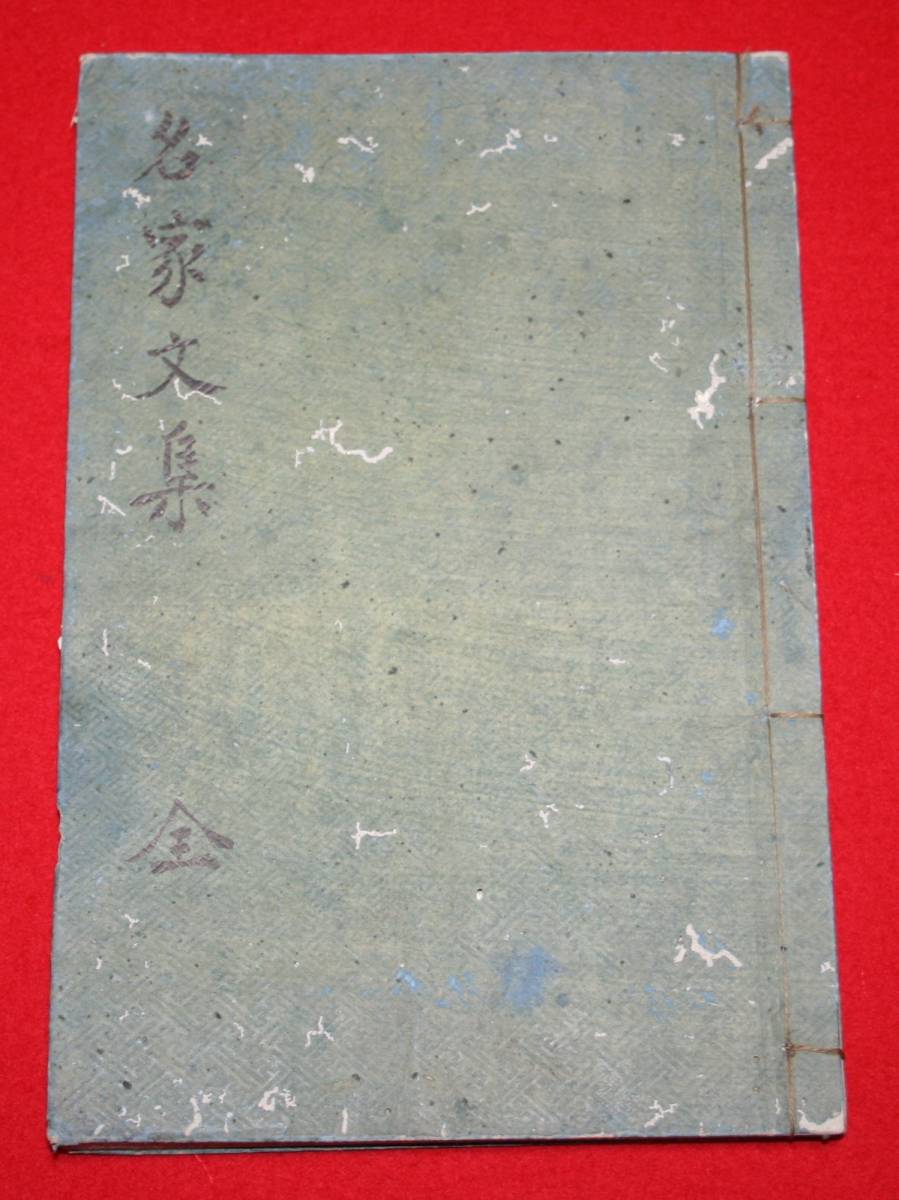 名家文集 全